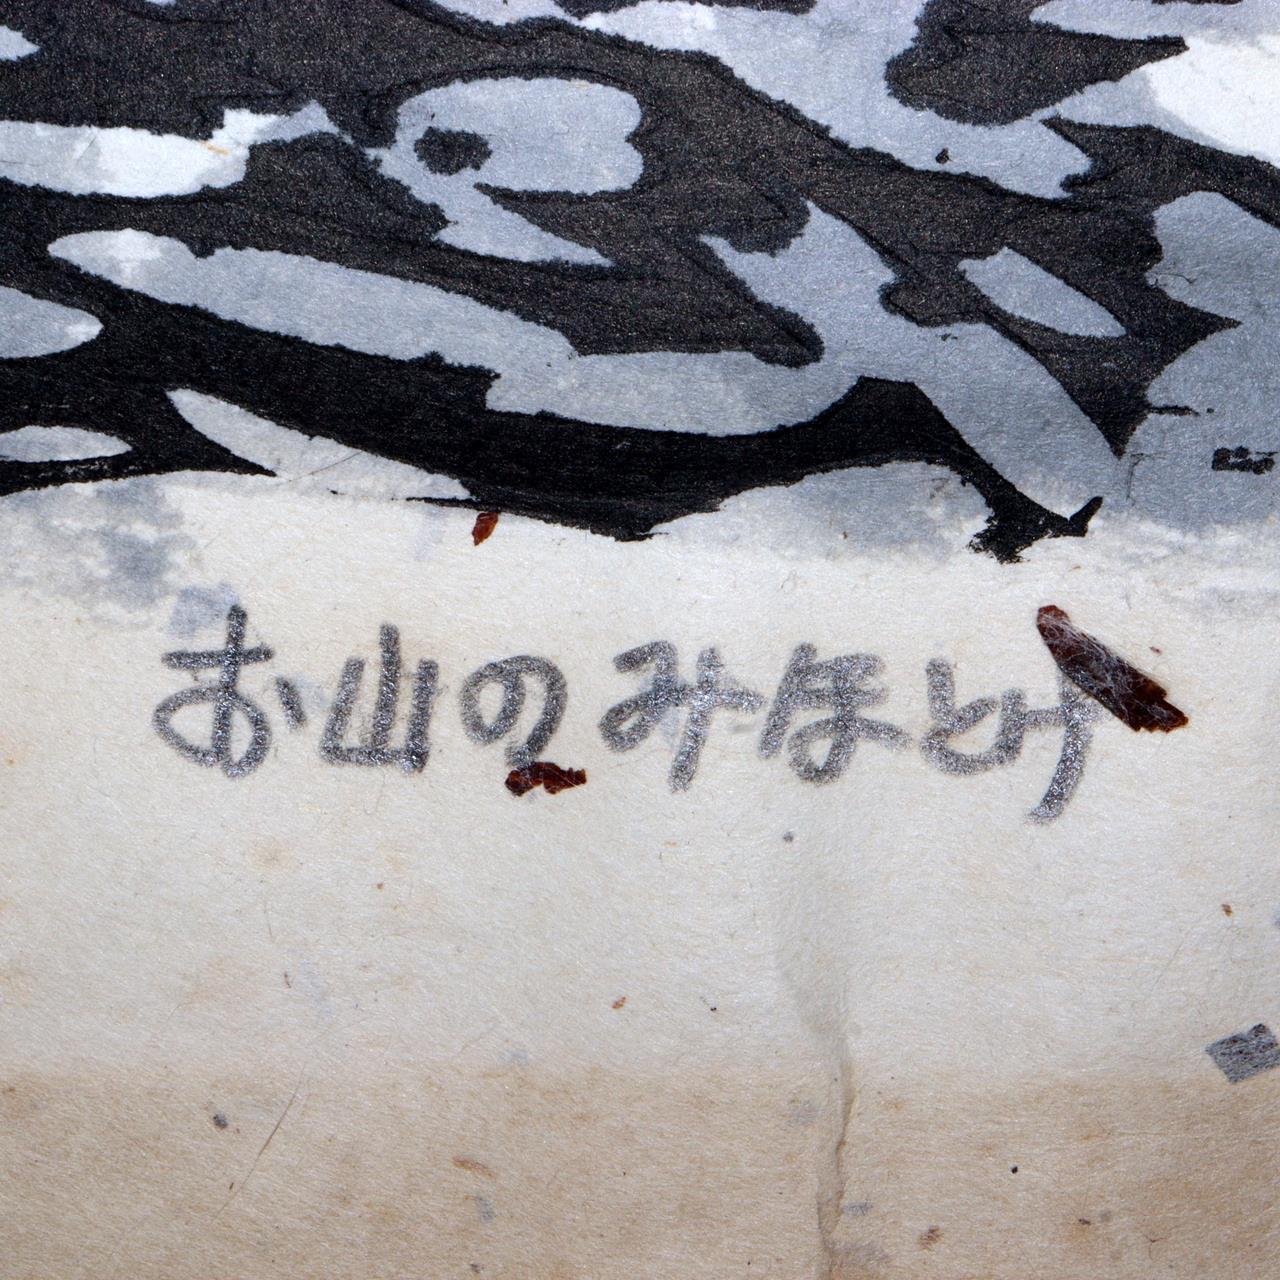 お山のみほとけ